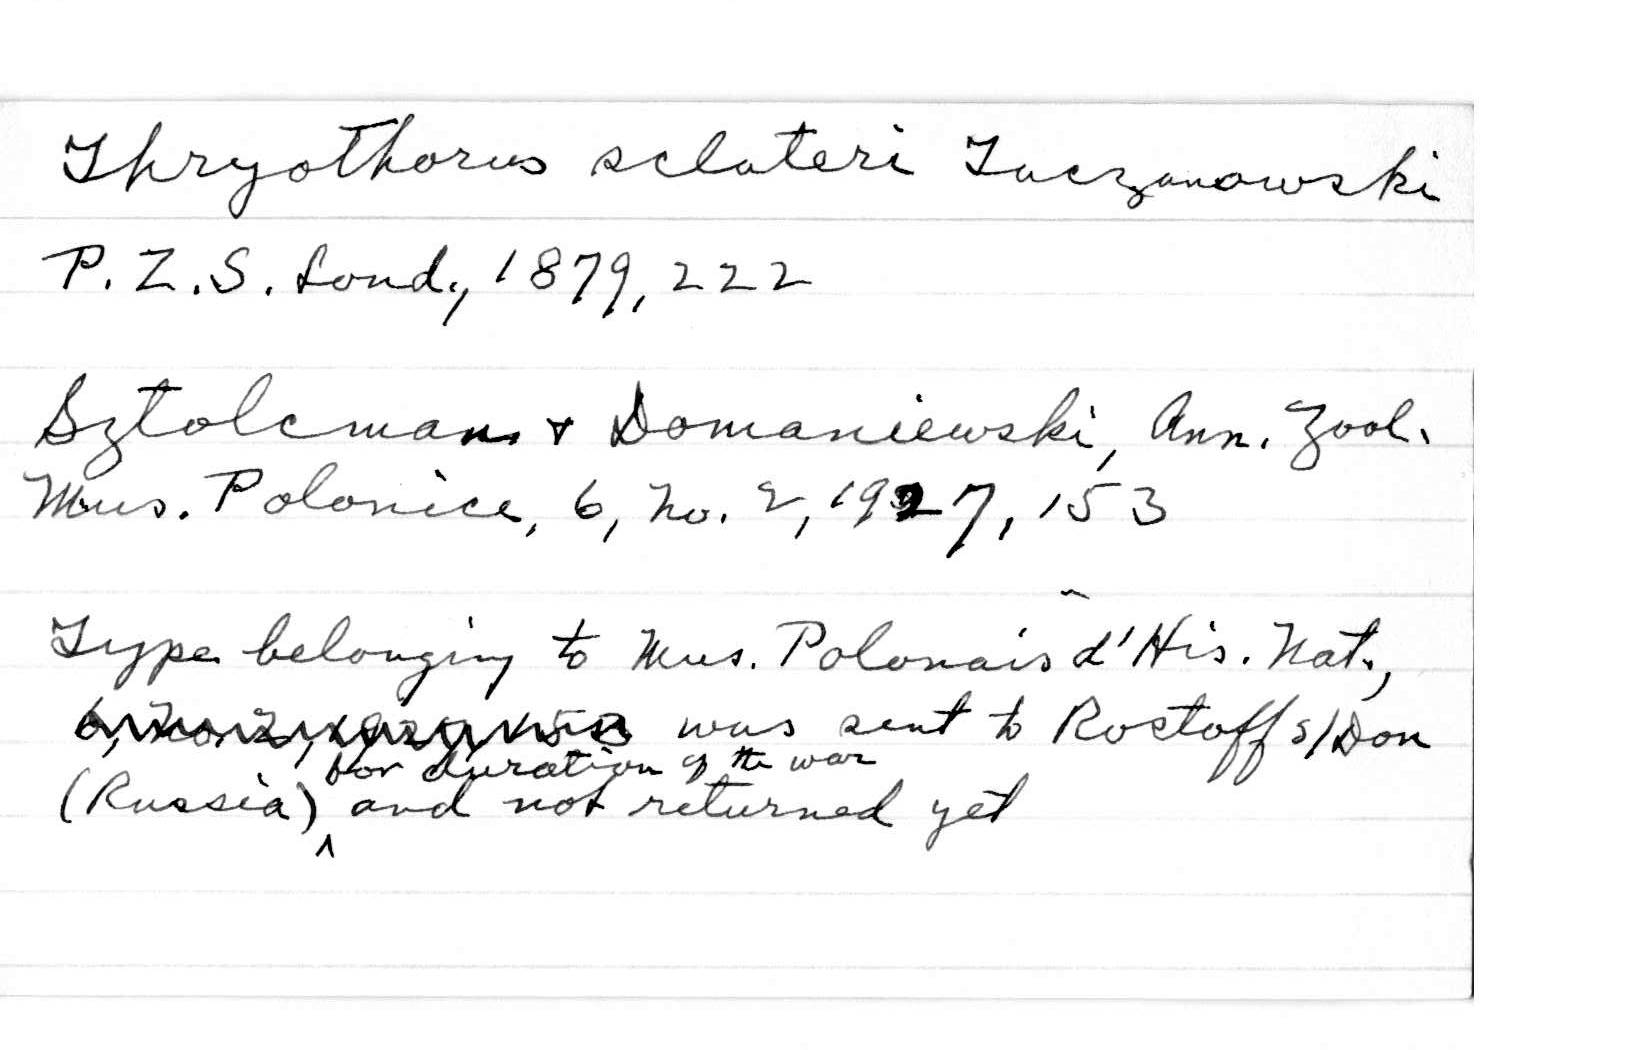 Thryothorus sclateri Taczanowski
P. Z. S. Lond., 1879, 222
Sztolcman & Domaniewski, Ann. Zool.
Mus. Polonice, 6, No. 2, 1927, 153
Type belonging to Mus. Polonais d'His. Nat.,
6, No. 2, 1927, 153 was sent to Rostoff s/Don
for duration of the war
(Russia) ^ and not returned yet